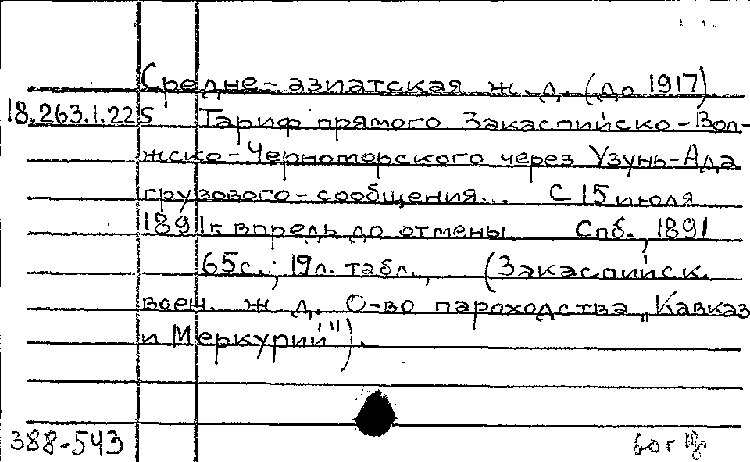 Средне-азиатская ж. д. (до 1917)
18.263.1.225 Тариф прямого Закаспийско-Вол-
жско-Черноморского через Узунь-Ада
грузового-сообщения... С 15 июля
1891г. впредь до отмены Спб., 1891
65с.; 19л. табл., (Закаспийск.
воен. ж. д. О-во пароходства „Кавказ
и Меркурий").
388-543